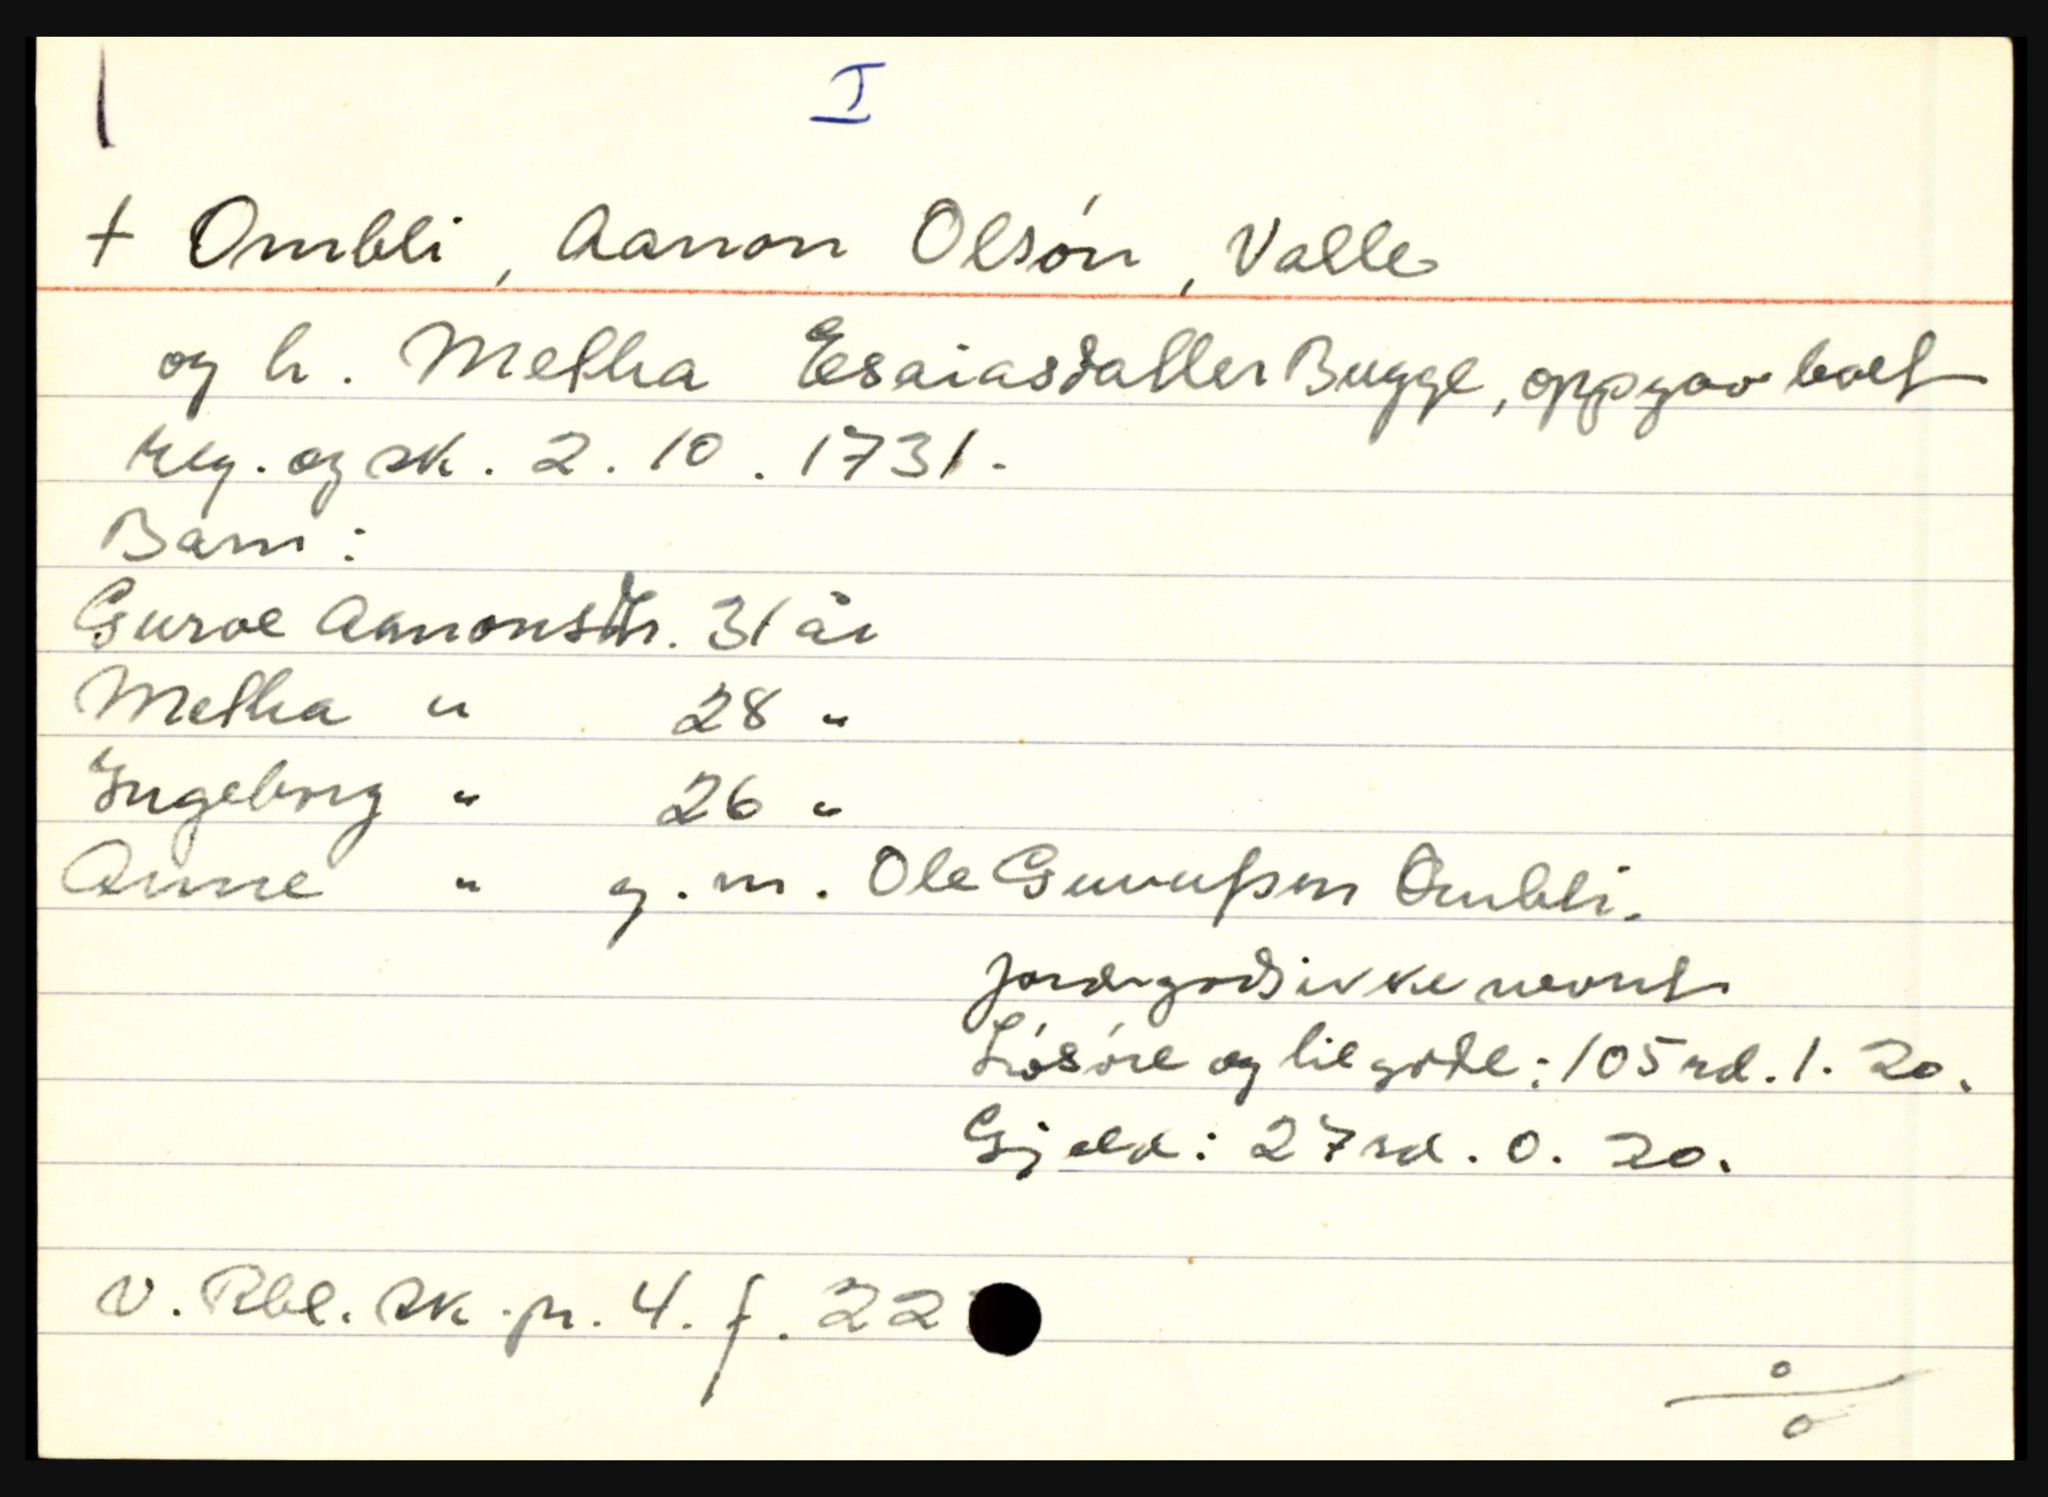 I
+ Ombli, Aanon Olsón, Valle
og h. Metha Esaiasdatter Bugge, oppgav boet
reg. og sk. 2. 10. 1731.
Barn:
Guroe Aanonsdtr. 31 år
Metha " 28 "
Ingeborg " 26 "
Anne " g. m. Ole Guvufsen Ombli.
Jordegods ikke nevnt
Lósóre og tilgode: 105 rd. 1. 20.
Gjeld: 27 rd. 0. 20.
V. Rbl. sk. pr. 4. f. 22